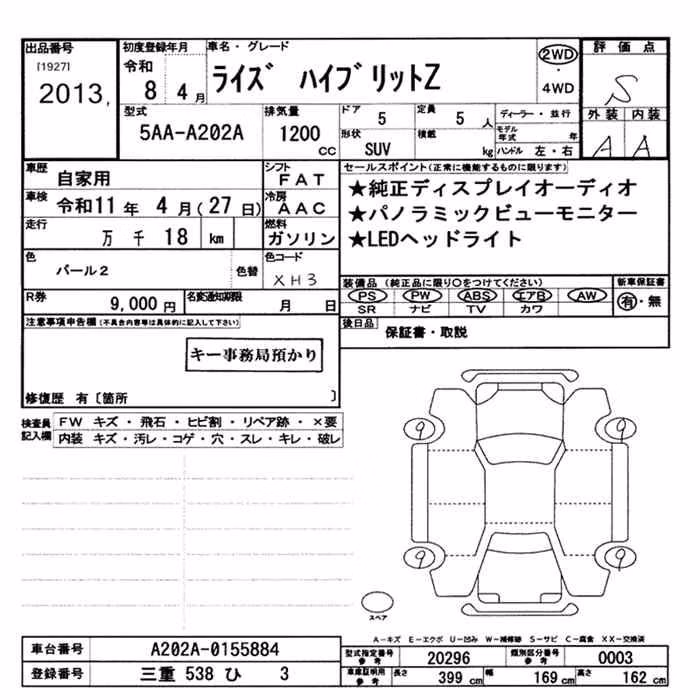 出品番号 初度登録年月 車名・グレード 2WD ・ 4WD 評価点
[1927] 2013, 令和 8 4月 ライズ ハイブリットZ S
型式 5AA-A202A 排気量 1200 cc ドア 5 定員 5 人 ディーラー・並行 外装 内装
形状 SUV 積載 kg モデル年式 年 ハンドル 左・右 A A
車歴 自家用 シフト FAT セールスポイント(正常に機能するものに限ります)
車検 令和11年 4月(27日) 冷房 AAC ★純正ディスプレイオーディオ
走行 万千18 km 燃料 ガソリン ★パノラミックビューモニター
★LEDヘッドライト
色 パール2 色替 色コード XH3
装備品 (純正品に限り○をつけてください) 新車保証書
PS PW ABS エアB AW 有・無
SR ナビ TV カワ
R券 9,000円 名変通知期限 月 日
後日品 保証書・取説
注意事項申告欄(不具合内容等は具体的に記入して下さい)
キー事務局預かり
修復歴 有〔箇所 〕
検査員記入欄 FW キズ・飛石・ヒビ割・リペア跡・×要
内装 キズ・汚レ・コゲ・穴・スレ・キレ・破レ
9 9
9 9
スペア
A-キズ E-エクボ U-凹み W-補修跡 S-サビ C-腐食 XX-交換済
車台番号 A202A-0155884 型式指定番号 参考 20296 類別区分番号 参考 0003
登録番号 三重 538 ひ 3 車庫証明用 参考 長さ 399 cm 幅 169 cm 高さ 162 cm